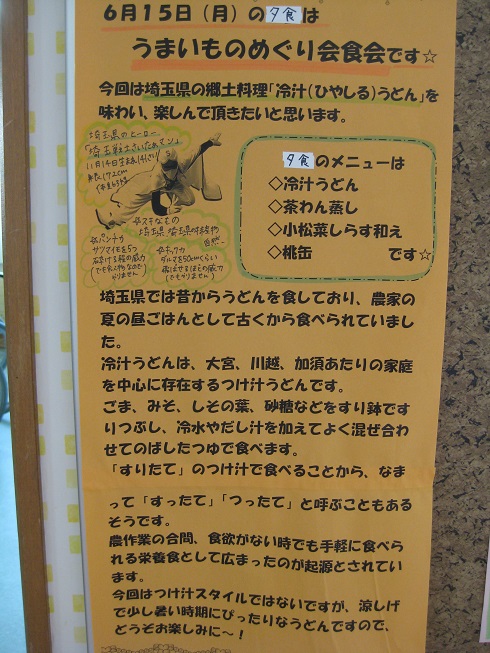 6月15日(月)の夕食は
うまいものめぐり会食会です☆
今回は埼玉県の郷土料理「冷汁(ひやしる)うどん」を
味わい、楽しんで頂きたいと思います。
埼玉県のヒーロー
11月14日生まれ
身長172cm
☆スキなもの
埼玉県、埼玉県の特産物
自然。
☆パンチ力
サツマイモを5つ
でも食べ物なので
やりません
☆キック力
ダルマを50cmくらい
飛ばせるほどの威力
夕食のメニューは
◇冷汁うどん
◇茶わん蒸し
◇小松菜しらす和え
◇桃缶 です☆
埼玉県では昔からうどんを食しており、農家の
夏の昼ごはんとして古くから食べられていまし
た。
冷汁うどんは、大宮、川越、加須あたりの家庭
を中心に存在するつけ汁うどんです。
ごま、みそ、しその葉、砂糖などをすり鉢です
りつぶし、冷水やだし汁を加えてよく混ぜ合わ
せてのばしたつゆで食べます。
「すりたて」のつけ汁で食べることから、なま
って「すったて」「つったて」と呼ぶこともある
そうです。
農作業の合間、食欲がない時でも手軽に食べら
れる栄養食として広まったのが起源とされてい
ます。
今回はつけ汁スタイルではないですが、涼しげ
で少し暑い時期にぴったりなうどんですので、
どうぞお楽しみに〜！